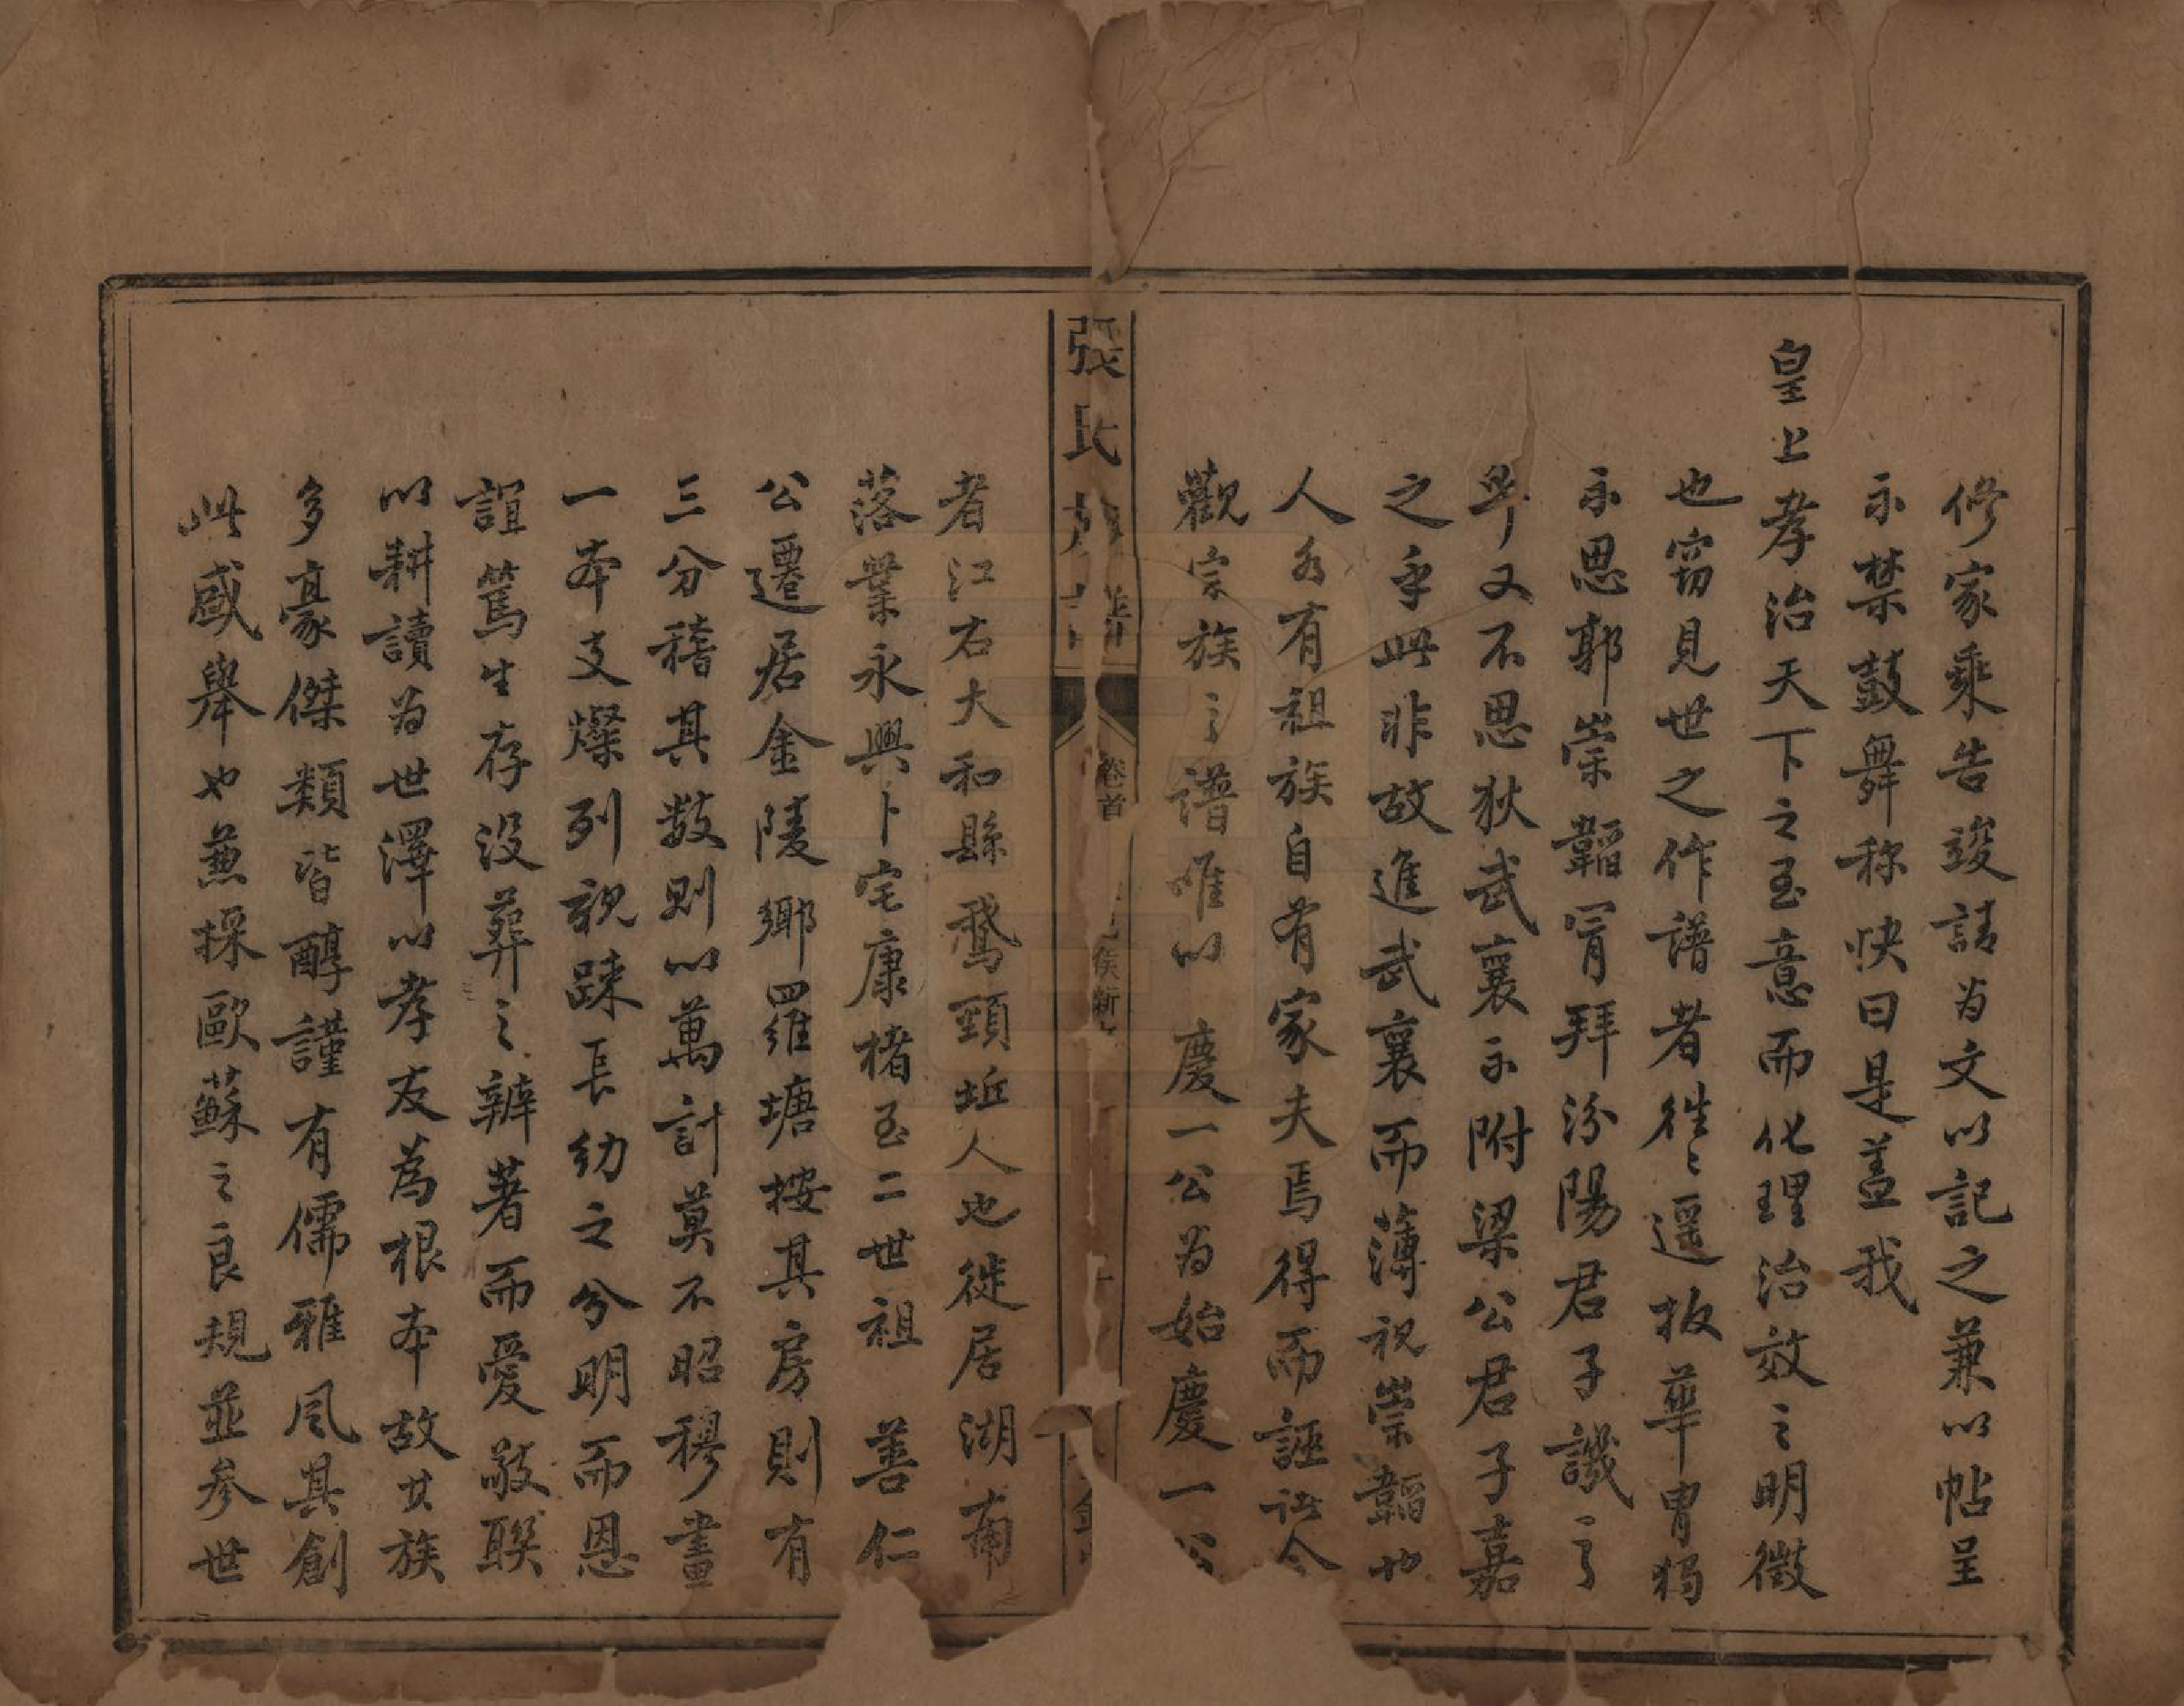 修家乘告竣請为文以記之兼以帖呈
示禁鼓舞称快曰是盖我
皇上孝治天下之至意而化理治效之明徵
也窃見世之作譜者徃〻遥扳華胄獨
不思郭崇韜冐拜汾陽君子譏之
早又不思狄武襄不附梁公君子嘉
之乎此非故進武襄而薄視崇韜也
人各有祖族自有家夫焉得而誣訟今
觀宗族之譜唯以 慶一公为始慶一公
張氏族譜 卷首
者江右大和縣鵞頸坵人也徙居湖南
落業永興卜宅康楮至二世祖 善仁
公遷居金陵鄉羅塘按其房則有
三分稽其数則以萬計莫不昭穆畫
一本支燦列親踈長幼之分明而恩
誼篤生存没葬之辨著而愛敬联
以耕讀为世澤以孝友為根本故其族
多豪傑類皆醇謹有儒雅风其創
此盛舉也兼採歐蘇之良規並参世